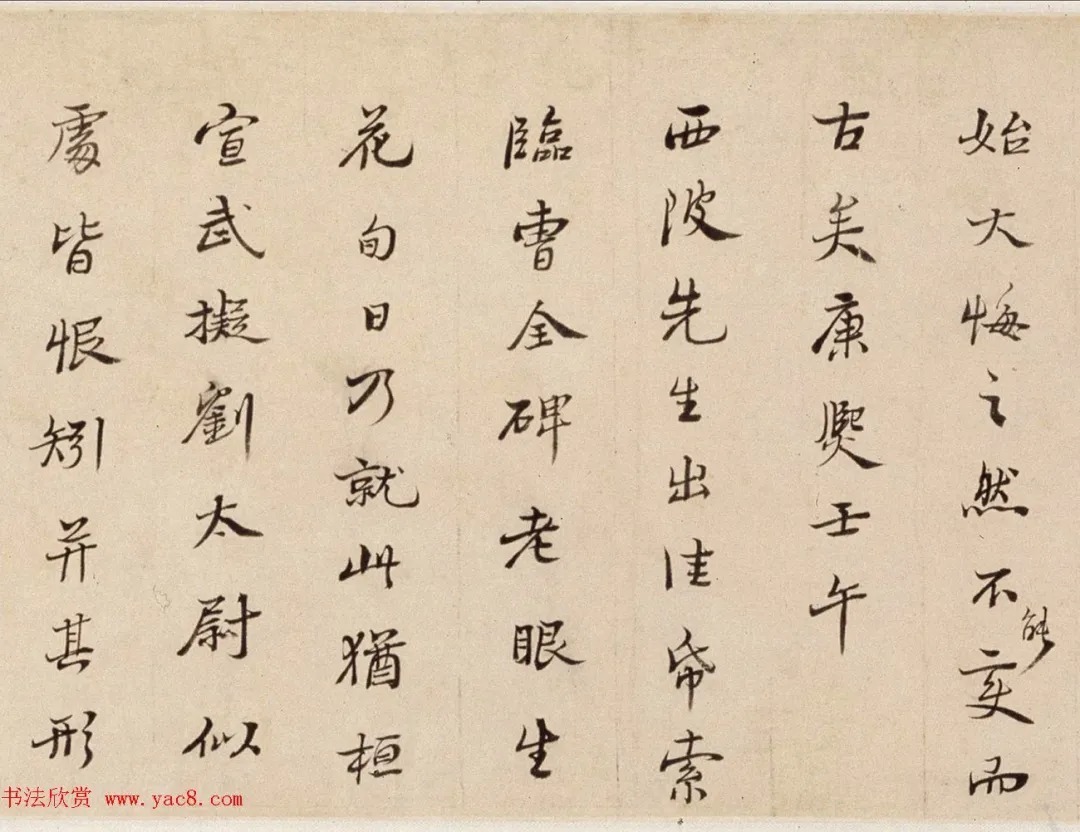 始大悔之然不能变而
古矣康熙壬午
西陂先生出佳帋索
臨曹全碑老眼生
花旬日乃就此猶桓
宣武擬劉太尉似
處皆恨矧并其形
书法欣赏 www.yac8.com